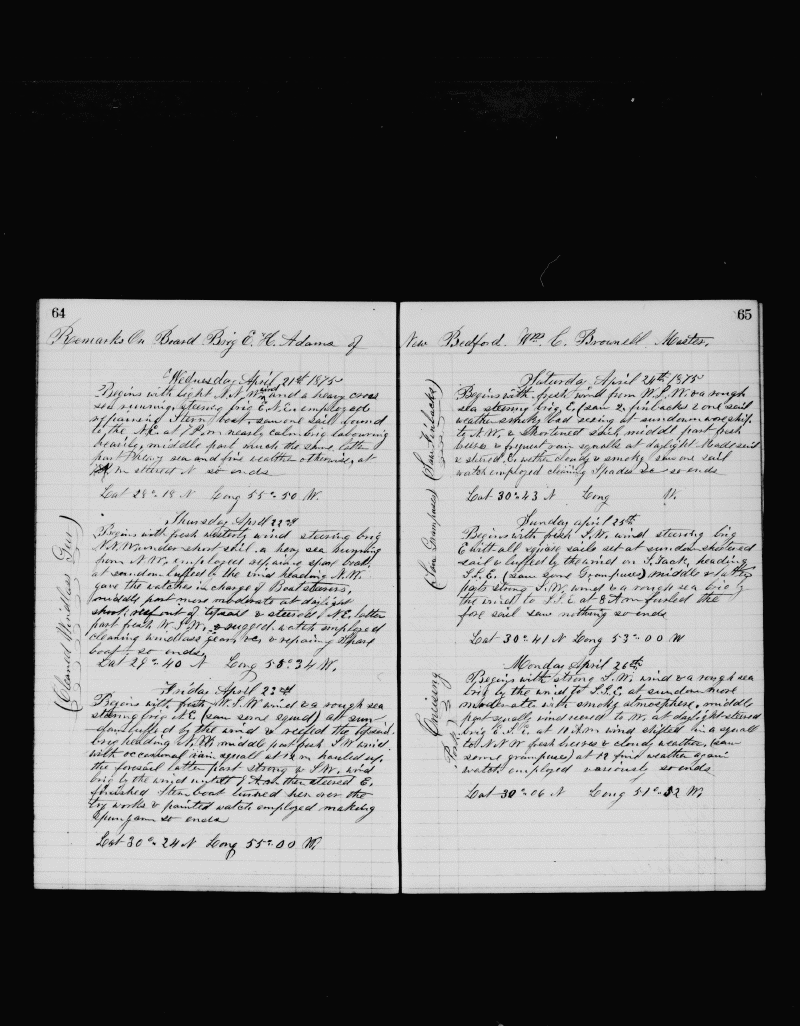 64
Remarks On Board Brig E. H. Adams of
Wednesday April 21st 1875
Begins with light N.N.W. wind and a heavy cross
sea running steering brig E.N.E. employed
repairing Stern boat, saw one sail bound
to the N.E. at 8 P.m nearly calm brig labouring
heavily, middle part much the same, latter
part heavy sea and fine weather otherwise, at
m steered N so ends
Lat 29° 19 N Long 55° 50 W.
Thursday April 22nd
Begins with fresh westerly wind steering brig
N.N.W. under short sail, a heavy sea running
from N.W. employed repairing spare boat,
at sundown luffed by the wind heading N.W.
gave the watches in charge of Boatsteerers,
middle part more moderate at daylight
shook reef out of topsail & steered N.E. latter
part fresh W.S.W. & rugged, watch employed
cleaning windlass gear, &c, & repairing spare
boat so ends
Lat 29° 40 N Long 55° 34 W.
(Cleaned Windlass Gear)
Friday April 23rd
Begins with fresh W.S.W wind & a rough sea
steering brig N.E. (saw some squid) at sun-
down luffed by the wind & reefed the topsail.
brig heading N.W. middle part fresh S.W wind
with occasional rain squall at 12 m hauled up
the foresail, latter part strong & S.W. wind
brig by the wind untill 9 A.m then steered E.
finished Stern boat turned her over the
try works & painted watch employed making
spunyarn so ends
Lat 30° 24 N Long 55° 00 W.
65
New Bedford. Wm C. Brownell Master.
Saturday April 24th 1875
Begins with fresh wind from W.S.W. & a rough
sea steering brig, E. (saw 2 finbacks & one sail
weather smoky bad seeing at sundown wore ship
to N.W. & Shortened sail, middle part fresh
breeze & frequent rain squalls at daylight Made sail
& steered E. weather cloudy & smoky saw one sail
watch employed cleaning Spades &c so ends
Lat 30° 43 N Long W.
(Saw Finbacks)
Sunday april 25th
Begins with fresh S.W. wind steering brig
E with all square sails set at sundown shortened
sail & luffed by the wind on S. Tack, heading
S.S.E. (saw some Grampuses) middle & latter
parts strong S.W. wind & a rough sea brig by
the wind to S.S.E at 8 A.m furled the
fore sail saw nothing so ends
Lat 30° 41 N Long 53° 00 W
(Saw Grampuses)
Monday April 26th
Begins with strong S.W. wind & a rough sea
brig by the wind to S.S.E. at sundown more
moderate with smoky atmosphere, middle
part squally wind veered to W. at daylight steered
brig E.S.E. at 10 A.m wind shifted in a squall
to N.N.W fresh breeze & cloudy weather, (saw
some grampuses) at 12 fine weather again
watch employed variously so ends
Lat 30° 06 N Long 51° 32 W.
Cruising